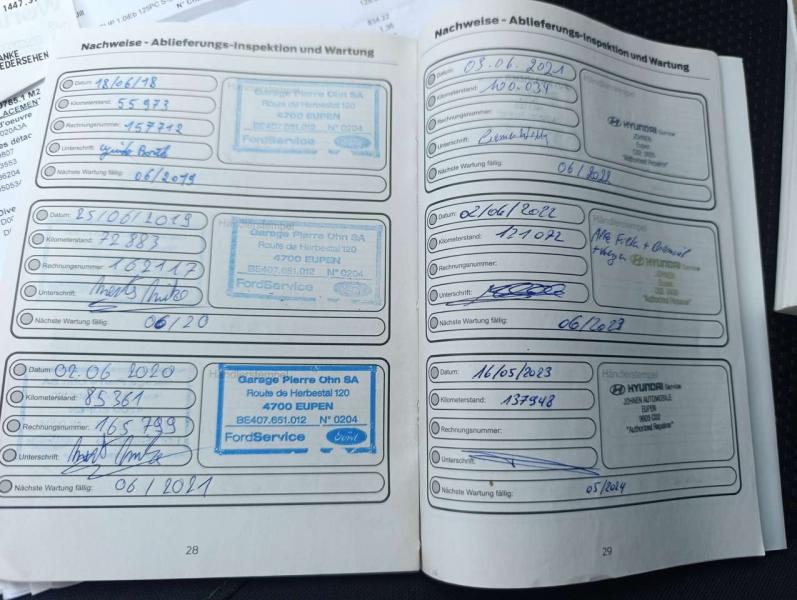 1447.3
ANKE
EDERSEHEN
Nachweise - Ablieferungs-Inspektion und Wartung
Datum: 18/06/18
Kilometerstand: 55 973
Rechnungsnummer: 157712
Unterschrift:
Nächste Wartung fällig: 06/2019
Garage Pierre Ohn SA
Route de Herbestal 120
4700 EUPEN
BE407.651.012 N° 0204
FordService Ford
Datum: 25/06/2019
Kilometerstand: 72 883
Rechnungsnummer: 162117
Unterschrift:
Nächste Wartung fällig: 06/20
Händlerstempel
Garage Pierre Ohn SA
Route de Herbestal 120
4700 EUPEN
BE407.651.012 N° 0204
FordService Ford
Datum: 02.06 2020
Kilometerstand: 85 361
Rechnungsnummer: 165 799
Unterschrift:
Nächste Wartung fällig: 06/2021
Händlerstempel
Garage Pierre Ohn SA
Route de Herbestal 120
4700 EUPEN
BE407.651.012 N° 0204
FordService Ford
28
Nachweise - Ablieferungs-Inspektion und Wartung
Datum: 03.06.2021
Kilometerstand: 100.034
Rechnungsnummer:
Unterschrift:
Nächste Wartung fällig: 06/2022
Händlerstempel
HYUNDAI Service
JOHNEN
Eupen
"Authorized Repairer"
Datum: 02/06/2022
Kilometerstand: 121 072
Rechnungsnummer:
Unterschrift:
Nächste Wartung fällig: 06/2023
Händlerstempel
Alle Filter +
HYUNDAI Service
JOHNEN
Eupen
"Authorized Repairer"
Datum: 16/05/2023
Kilometerstand: 137948
Rechnungsnummer:
Unterschrift:
Nächste Wartung fällig: 05/2024
Händlerstempel
HYUNDAI Service
JOHNEN AUTOMOBILE
EUPEN
"Authorized Repairer"
29